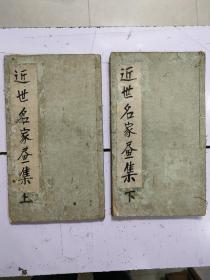 近世名家画集上
近世名家画集下